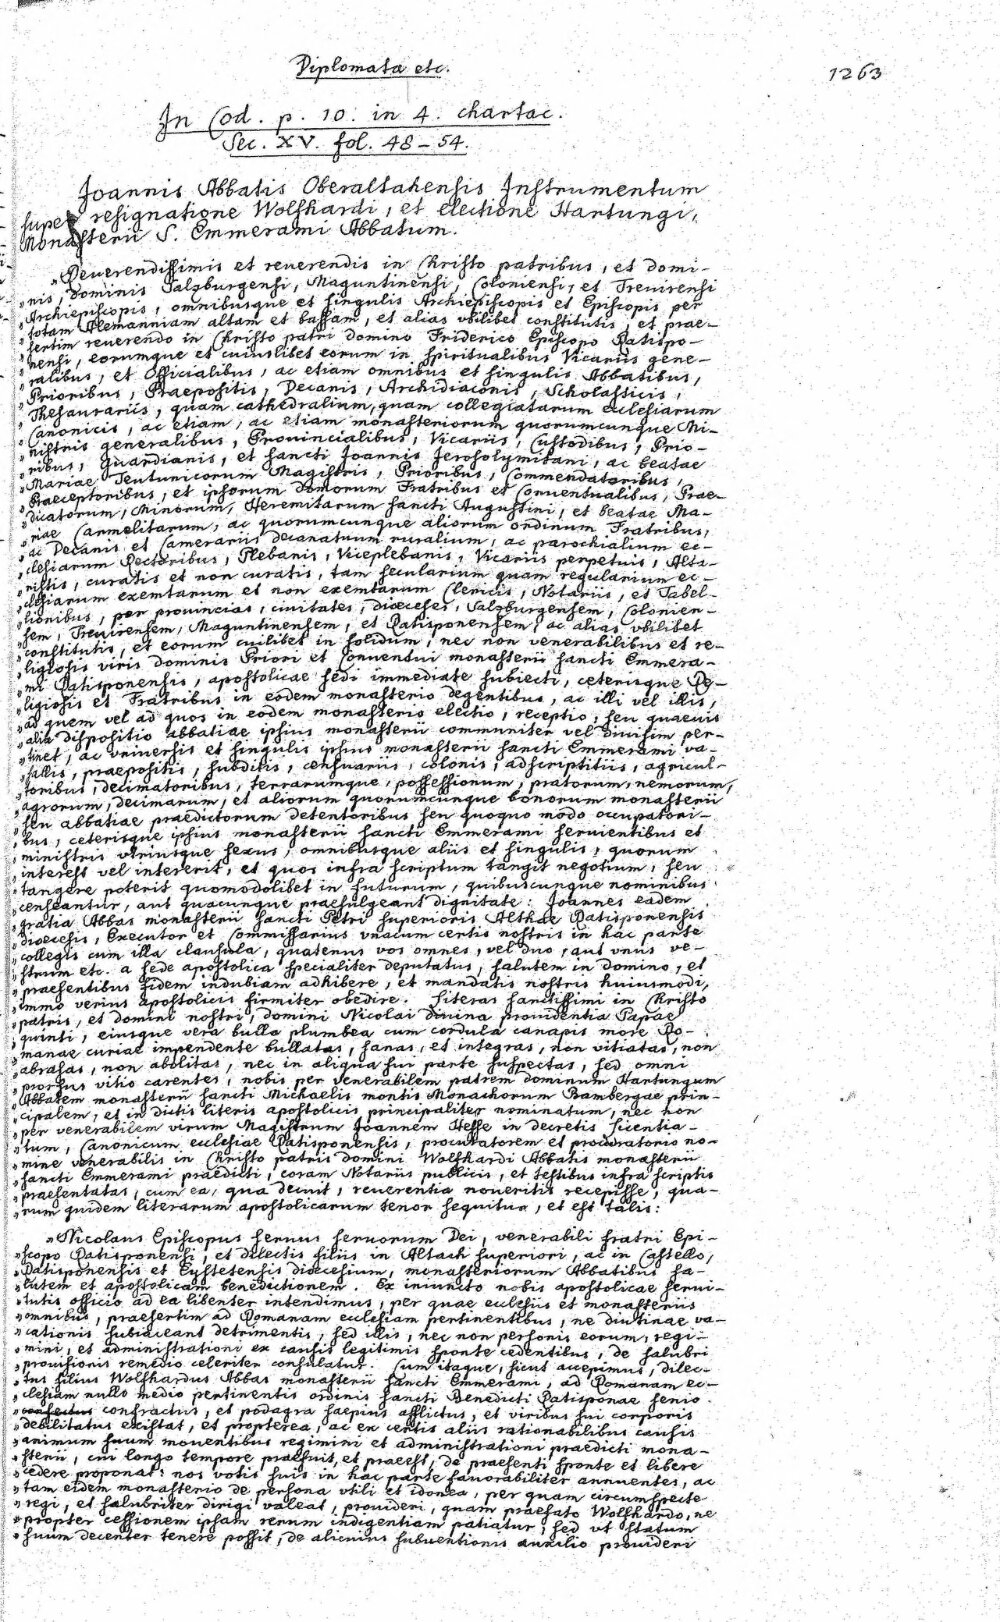 Diplomata etc.
1263
In Cod. p. 10. in 4. chartac.
Sec. XV. fol. 48-54.
Joannis Abbatis Oberaltahensis Instrumentum
super resignatione Wolfhardi, et electione Hartungi,
Monasterii S. Emmerami Abbatum.
"Reuerendissimis et reuerendis in Christo patribus, et domi-
"nis, dominis Salzburgensi, Maguntinensi, Coloniensi, et Treuirensi
"Archiepiscopis, omnibusque et singulis Archiepiscopis et Episcopis per
"totam Alemanniam altam et bassam, et alias vbilibet constitutis, et prae-
"sertim reuerendo in Christo patri domino Friderico Episcopo Ratispo-
"nensi, eorumque et cuiuslibet eorum in spiritualibus Vicariis gene-
"ralibus, et Officialibus, ac etiam omnibus et singulis Abbatibus,
"Prioribus, Praepositis, Decanis, Archidiaconis, Scholasticis,
"Thesaurariis, quam cathedralium, quam collegiatarum ecclesiarum
"Canonicis, ac etiam, ac etiam monasteriorum quorumcunque Mi-
"nistris generalibus, Prouincialibus, Vicariis, Custodibus, Prio-
"ribus, Guardianis, et sancti Joannis Jerosolymitani, ac beatae
"Mariae Teutunicorum Magistris, Prioribus, Commendatoribus,
"Praeceptoribus, et ipsorum domorum Fratribus et Conuentualibus, Prae-
"dicatorum, Minorum, Heremitarum sancti Augustini, et beatae Ma-
"riae Carmelitarum, ac quorumcunque aliorum ordinum Fratribus,
"ac Decanis et Camerariis decanatuum ruralium, ac parochialium ec-
"clesiarum Rectoribus, Plebanis, Viceplebanis, Vicariis perpetuis, Alta-
"ristis, curatis et non curatis, tam secularium quam regularium ec-
"clesiarum exemtarum et non exemtarum Clericis, Notariis, et Tabel-
"lionibus, per prouincias, ciuitates, dioeceses, Salzburgensem, Colonien-
"sem, Treuirensem, Maguntinensem, et Ratisponensem, ac alias vbilibet
"constitutis, et eorum cuilibet in solidum, nec non venerabilibus et re-
"ligiosis viris dominis Priori et Conuentui monasterii sancti Emmera-
"mi Ratisponensis, apostolicae sedi immediate subiecti, ceterisque Re-
"ligiosis et Fratribus in eodem monasterio degentibus, ac illi vel illis,
"ad quem vel ad quos in eodem monasterio electio, receptio, seu quaeuis
"alia dispositio abbatiae ipsius monasterii communiter vel diuisim per-
"tinet, ac vniuersis et singulis ipsius monasterii sancti Emmerami va-
"sallis, praepositis, subditis, censuariis, colonis, adscriptitiis, agricul-
"toribus, decimatoribus, terrarumque, possessionum, pratorum, nemorum,
"agrorum, decimarum, et aliorum quorumcunque bonorum monasterii
"seu abbatiae praedictorum detentoribus seu quoquo modo occupatori-
"bus, ceterisque ipsius monasterii sancti Emmerami seruientibus et
"ministris vtriusque sexus, omnibusque aliis et singulis, quorum
"interest vel intererit, et quos infra scriptum tangit negotium, seu
"tangere poterit quomodolibet in futurum, quibuscunque nominibus
"censeantur, aut quacunque praefulgeant dignitate: Joannes eadem
"gratia Abbas monasterii sancti Petri superioris Althae Ratisponensis
"dioecesis, Executor et Commissarius vnacum certis nostris in hac parte
"collegis cum illa clausula, quatenus vos omnes, vel duo, aut vnus ve-
"strum etc. a sede apostolica specialiter deputatus, salutem in domino, et
"praesentibus fidem indubiam adhibere, et mandatis nostris huiusmodi,
"immo verius apostolicis firmiter obedire. Literas sanctissimi in Christo
"patris, et domini nostri, domini Nicolai diuina prouidentia Papae
"quinti, eiusque vera bulla plumbea cum cordula canapis more Ro-
"manae curiae impendente bullatas, sanas, et integras, non vitiatas, non
"abrasas, non abolitas, nec in aliqua sui parte suspectas, sed omni
"prorsus vitio carentes, nobis per venerabilem patrem dominum Hartungum
"Abbatem monasterii sancti Michaelis montis Monachorum Bambergae prin-
"cipalem, et in dictis literis apostolicis principaliter nominatum, nec non
"per venerabilem virum Magistrum Joannem Hesse in decretis licentia-
"tum, Canonicum ecclesiae Ratisponensis, procuratorem et procuratorio no-
"mine venerabilis in Christo patris domini Wolfhardi Abbatis monasterii
"sancti Emmerami praedicti, coram Notariis publicis, et testibus infra scriptis
"praesentatas, cum ea, qua decuit, reuerentia noueritis recepisse, qua-
"rum quidem literarum apostolicarum tenor sequitur, et est talis:
"Nicolaus Episcopus seruus seruorum Dei, venerabili fratri Epi-
"scopo Ratisponensi, et dilectis filiis in Altach superiori, ac in Castello,
"Ratisponensis et Eystetensis dioecesium, monasteriorum Abbatibus sa-
"lutem et apostolicam benedictionem. Ex iniuncto nobis apostolicae serui-
"tutis officio ad ea libenter intendimus, per quae ecclesiis et monasteriis
"omnibus, praesertim ad Romanam ecclesiam pertinentibus, ne diutinae va-
"cationis subiaceant detrimentis, sed illis, nec non personis eorum, regi-
"mini, et administrationi ex causis legitimis sponte cedentibus, de salubri
"prouisionis remedio celeriter consulatur. Cum itaque, sicut accepimus, dilec-
"tus filius Wolfhardus Abbas monasterii sancti Emmerami, ad Romanam ec-
"clesiam nullo medio pertinentis ordinis sancti Benedicti Ratisponae senio
"confectus confractus, et podagra saepius afflictus, et viribus sui corporis
"debilitatus existat, et propterea, ac ex certis aliis rationabilibus causis
"animum suum mouentibus regimini et administrationi praedicti mona-
"sterii, cui longo tempore praefuit, et praeest, de praesenti sponte et libere
"cedere proponat: nos votis suis in hac parte fauorabiliter annuentes, ac
"tam eidem monasterio de persona vtili et idonea, per quam circumspecte
"regi, et salubriter dirigi valeat, prouideri, quam praefato Wolfhardo, ne
"propter cessionem ipsam rerum indigentiam patiatur, sed vt statum
"suum decenter tenere possit, de alicuius subuentionis auxilio prouideri